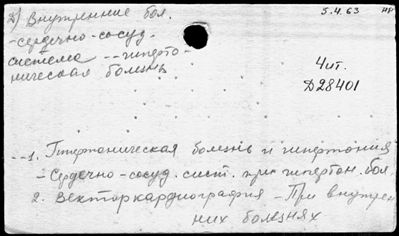 2) Внутренние бол.
5.4.63
-сердечно-сосуд.
система --гиперто-
ническая болезнь
Чит.
Д28401
--1. Гипертоническая болезнь и гипертония
- Сердечно-сосуд. сист. при гипертон. бол.
2. Векторкардиография - При внутрен
них болезнях